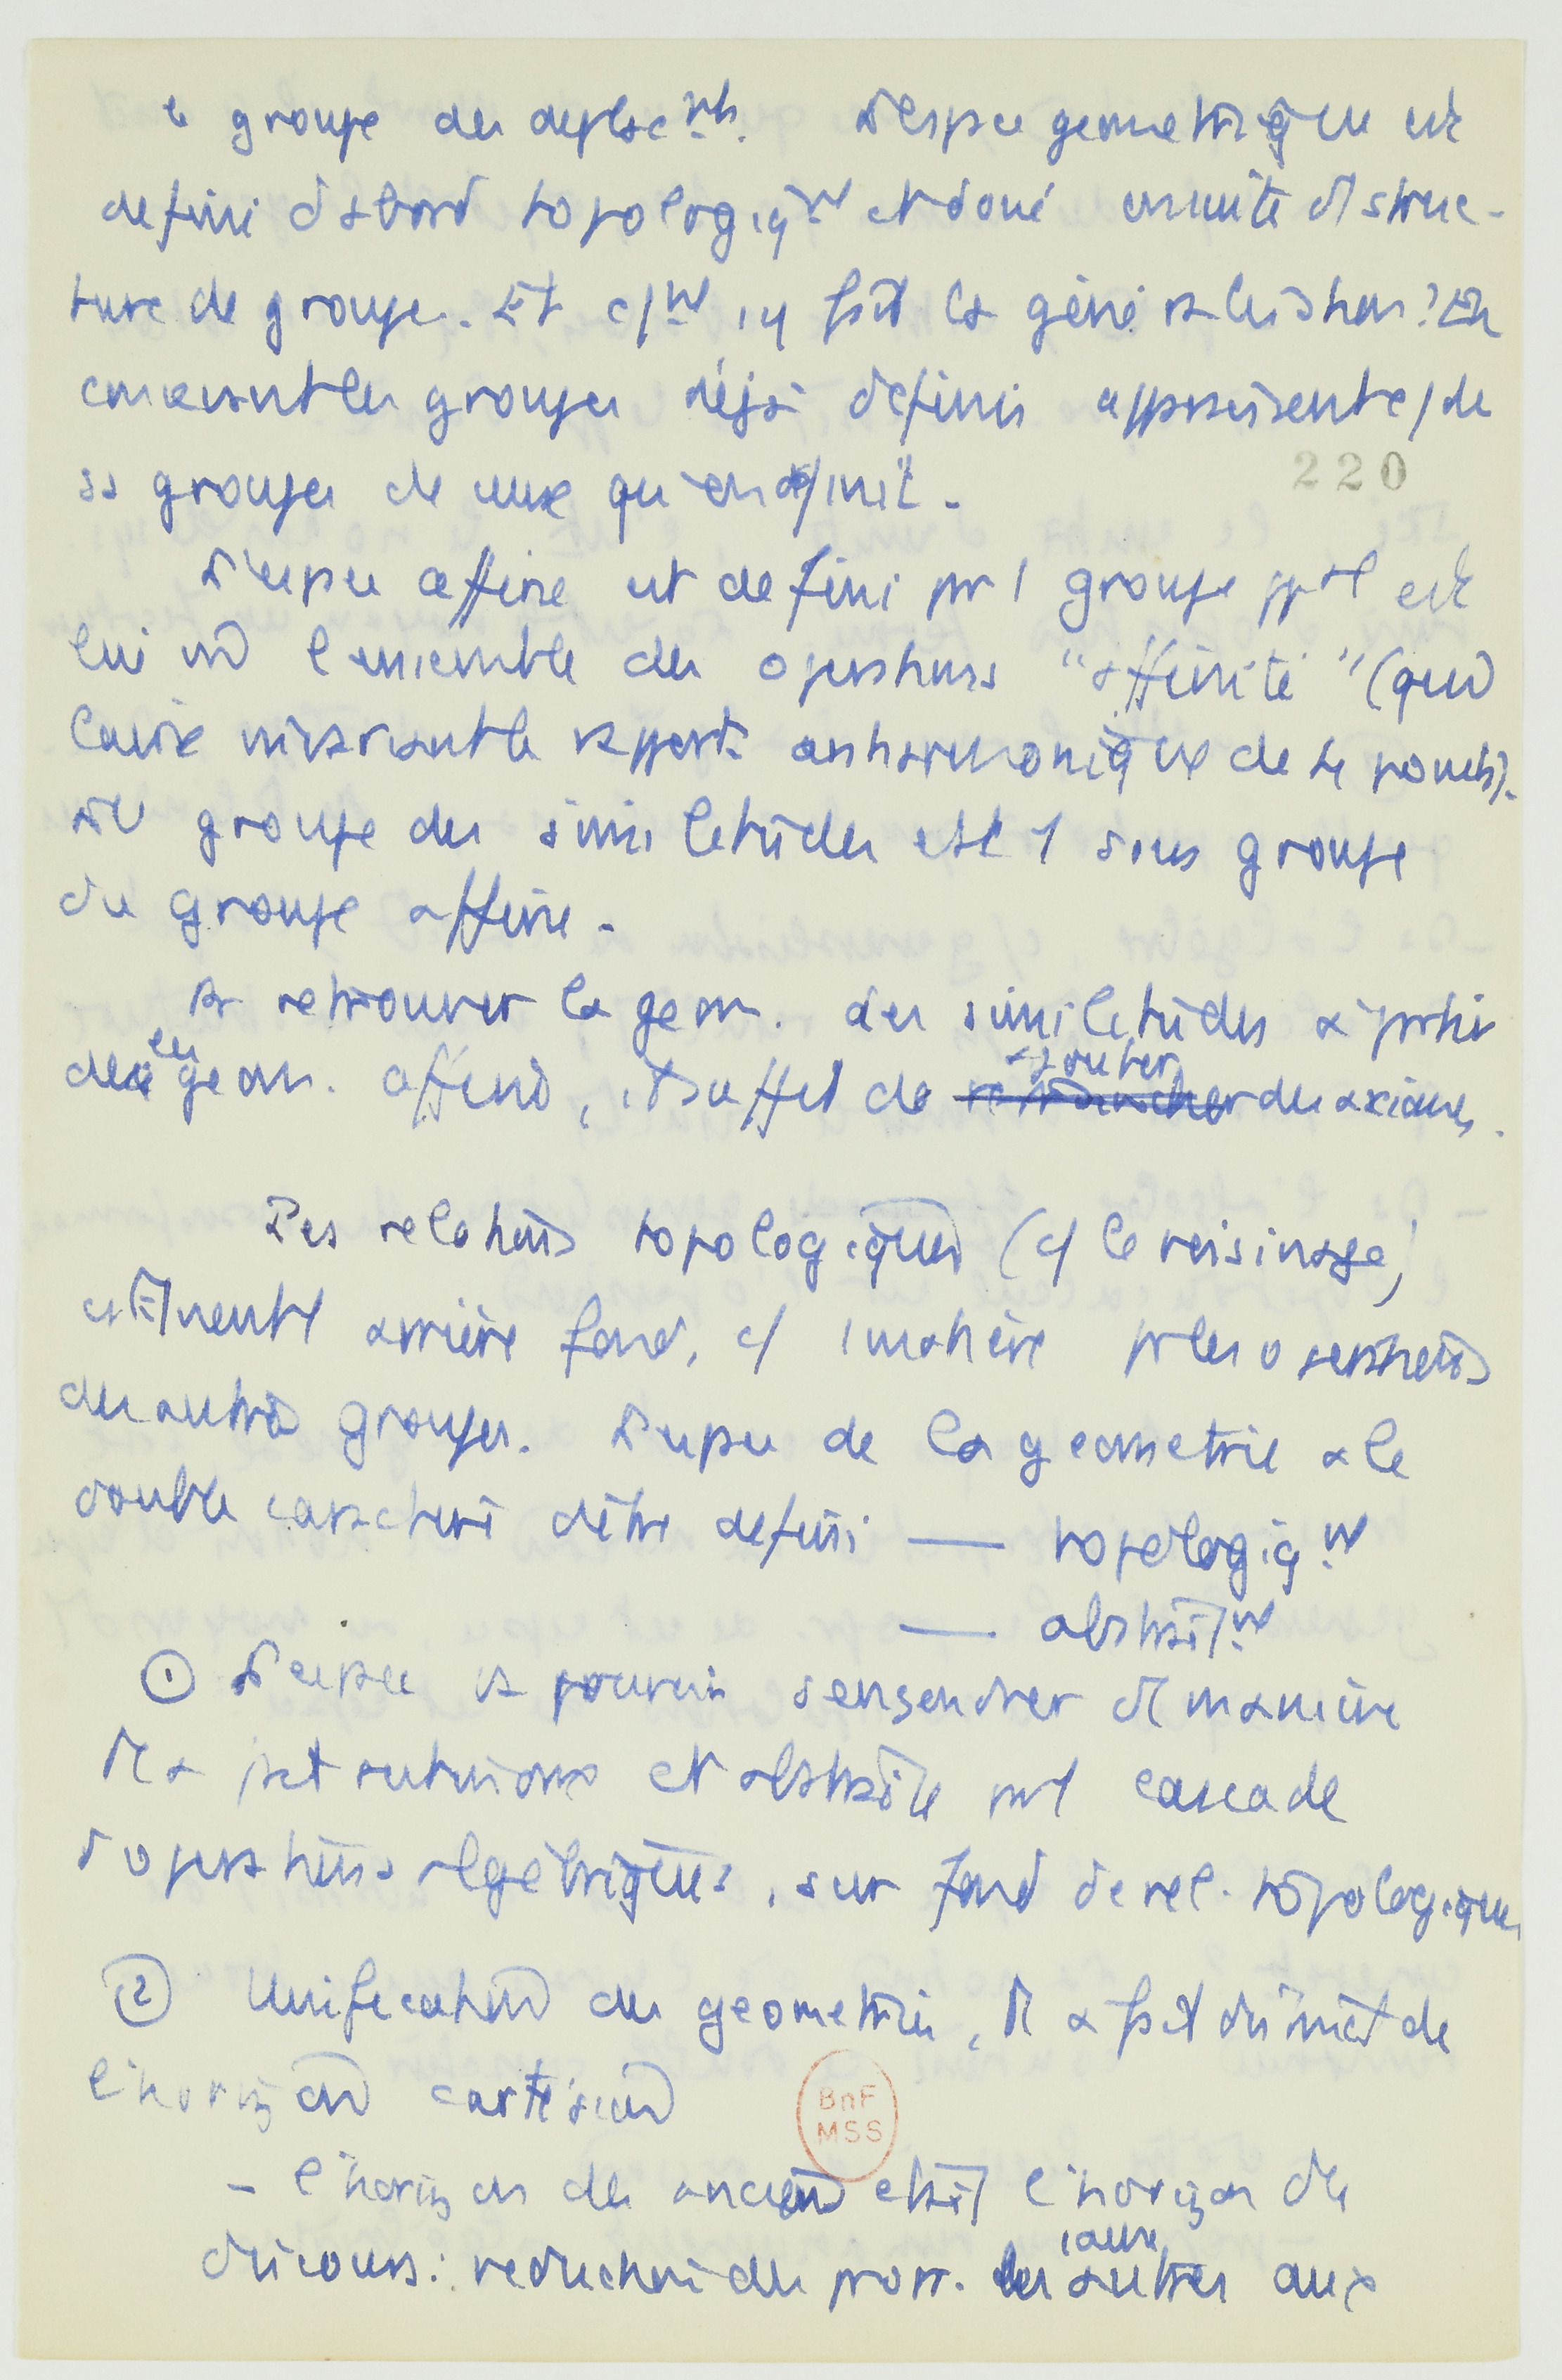 le groupe des deplacmts. L'espace geometrique est
defini d'abord topologiqmt et doué ensuite d1 struc-
ture de groupe. Et c/mt y fait la généralisation? En
conservant les groupes déjà définis
ss groupes de ceux qu'en définit.
220
L'espace affine est defini par 1 groupe est
lui l'ensemble des operations "affinité" (qui
laisse invariant le rapport anharmonique de 4 points).
Le groupe des similitudes est 1 sous groupe
du groupe affine.
Pr retrouver la geom. des similitudes a partir
de la geom. affine, il suffit de retrancher ajouter des axiomes.
Les relations topologiques (c/ le voisinage)
arrière fond, c/ 1 matière pr les operations
des autres groupes. L'espace de la geometrie a le
double caractère d'être defini — topologiqmt
— abstraitmt
① L'espace va pouvoir s'engendrer d1 manière
et abstraite par 1 cascade
d'operations algébriques, sur fond de rel. topologiques
② Unification des geometries, D. a fait de
l'horizon cartésien
BnF
MSS
- l'horizon des anciens etait l'horizon du
discours: reduction des prop. les unes aux
autres